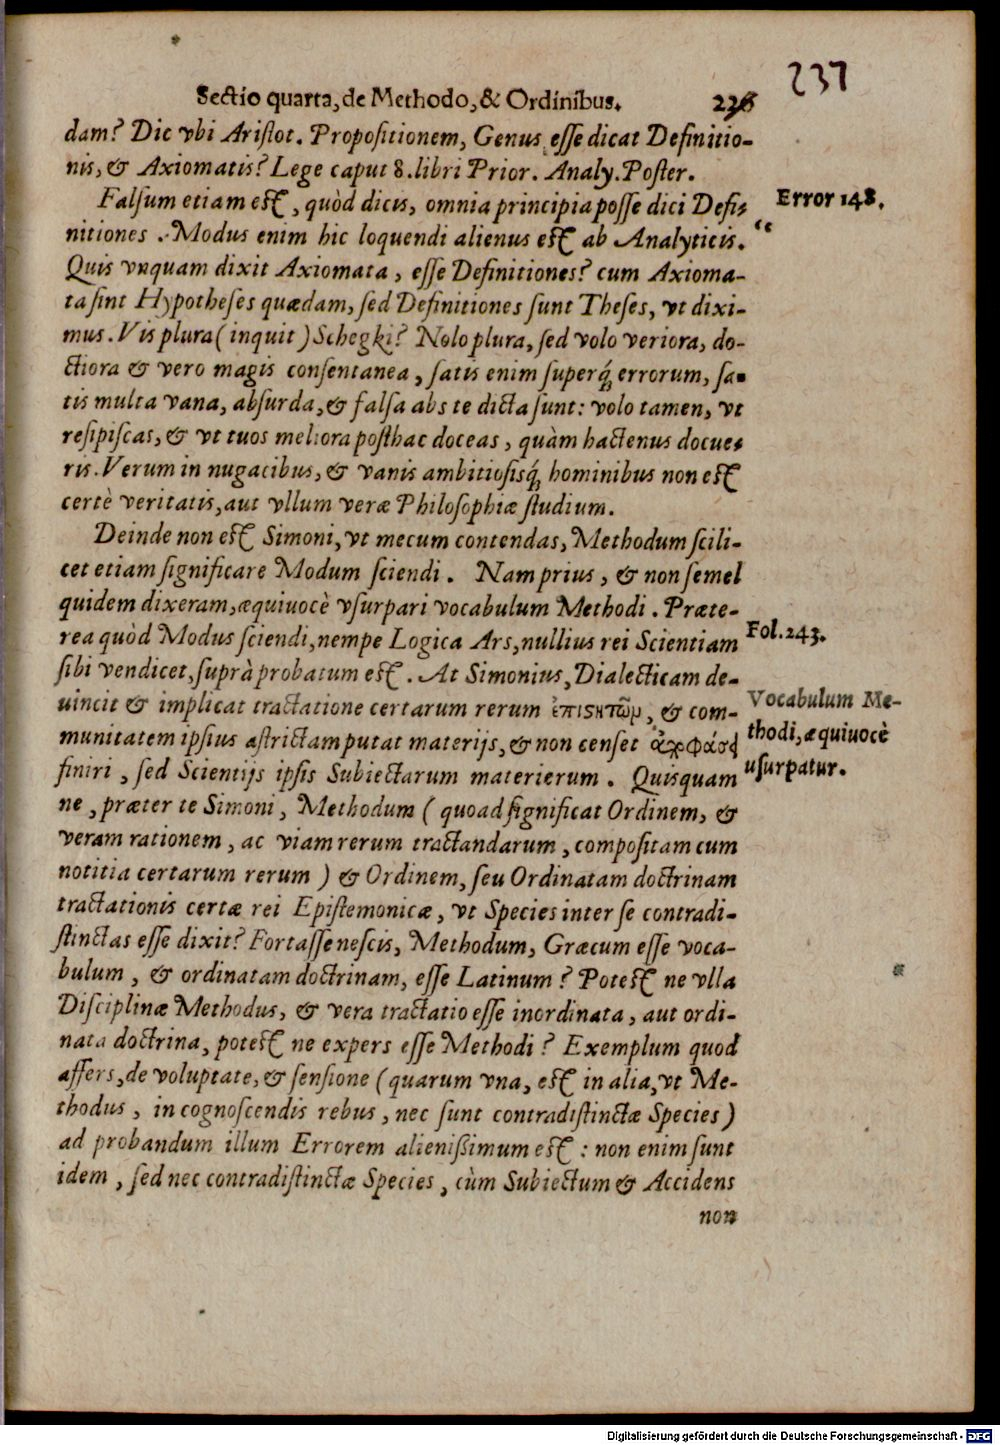 237
Sectio quarta, de Methodo, & Ordinibus. 226
dam? Dic vbi Aristot. Propositionem, Genus esse dicat Definitio-
nis, & Axiomatis? Lege caput 8. libri Prior. Analy. Poster.
Falsum etiam est, quòd dicis, omnia principia posse dici Defi-
Error 148.
nitiones. Modus enim hic loquendi alienus est ab Analyticis.
“
Quis vnquam dixit Axiomata, esse Definitiones? cum Axioma-
ta sint Hypotheses quædam, sed Definitiones sunt Theses, vt dixi-
mus. Vis plura (inquit) Schegki? Nolo plura, sed volo veriora, do-
ctiora & vero magis consentanea, satis enim superq́; errorum, sa-
tis multa vana, absurda, & falsa abs te dicta sunt: volo tamen, vt
resipiscas, & vt tuos meliora posthac doceas, quàm hactenus docue-
ris. Verum in nugacibus, & vanis ambitiosisq́; hominibus non est
certè veritatis, aut vllum veræ Philosophiæ studium.
Deinde non est Simoni, vt mecum contendas, Methodum scili-
cet etiam significare Modum sciendi. Nam prius, & non semel
quidem dixeram, æquiuocè vsurpari vocabulum Methodi. Præte-
rea quòd Modus sciendi, nempe Logica Ars, nullius rei Scientiam
Fol. 243.
sibi vendicet, suprà probatum est. At Simonius, Dialecticam de-
uincit & implicat tractatione certarum rerum ἐπιϛητῶμ, & com-
Vocabulum Me-
munitatem ipsius astrictam putat materijs, & non censet
thodi, æquiuocè
finiri, sed Scientijs ipsis Subiectarum materierum. Quisquam
usurpatur.
ne, præter te Simoni, Methodum (quoad significat Ordinem, &
veram rationem, ac viam rerum tractandarum, compositam cum
notitia certarum rerum) & Ordinem, seu Ordinatam doctrinam
tractationis certæ rei Epistemonicæ, vt Species inter se contradi-
stinctas esse dixit? Fortasse nescis, Methodum, Græcum esse voca-
bulum, & ordinatam doctrinam, esse Latinum? Potest ne vlla
Disciplinæ Methodus, & vera tractatio esse inordinata, aut ordi-
nata doctrina, potest ne expers esse Methodi? Exemplum quod
affers, de voluptate, & sensione (quarum vna, est in alia, vt Me-
thodus, in cognoscendis rebus, nec sunt contradistinctæ Species)
ad probandum illum Errorem alienißimum est: non enim sunt
idem, sed nec contradistinctæ Species, cùm Subiectum & Accidens
non
Digitalisierung gefördert durch die Deutsche Forschungsgemeinschaft - DFG